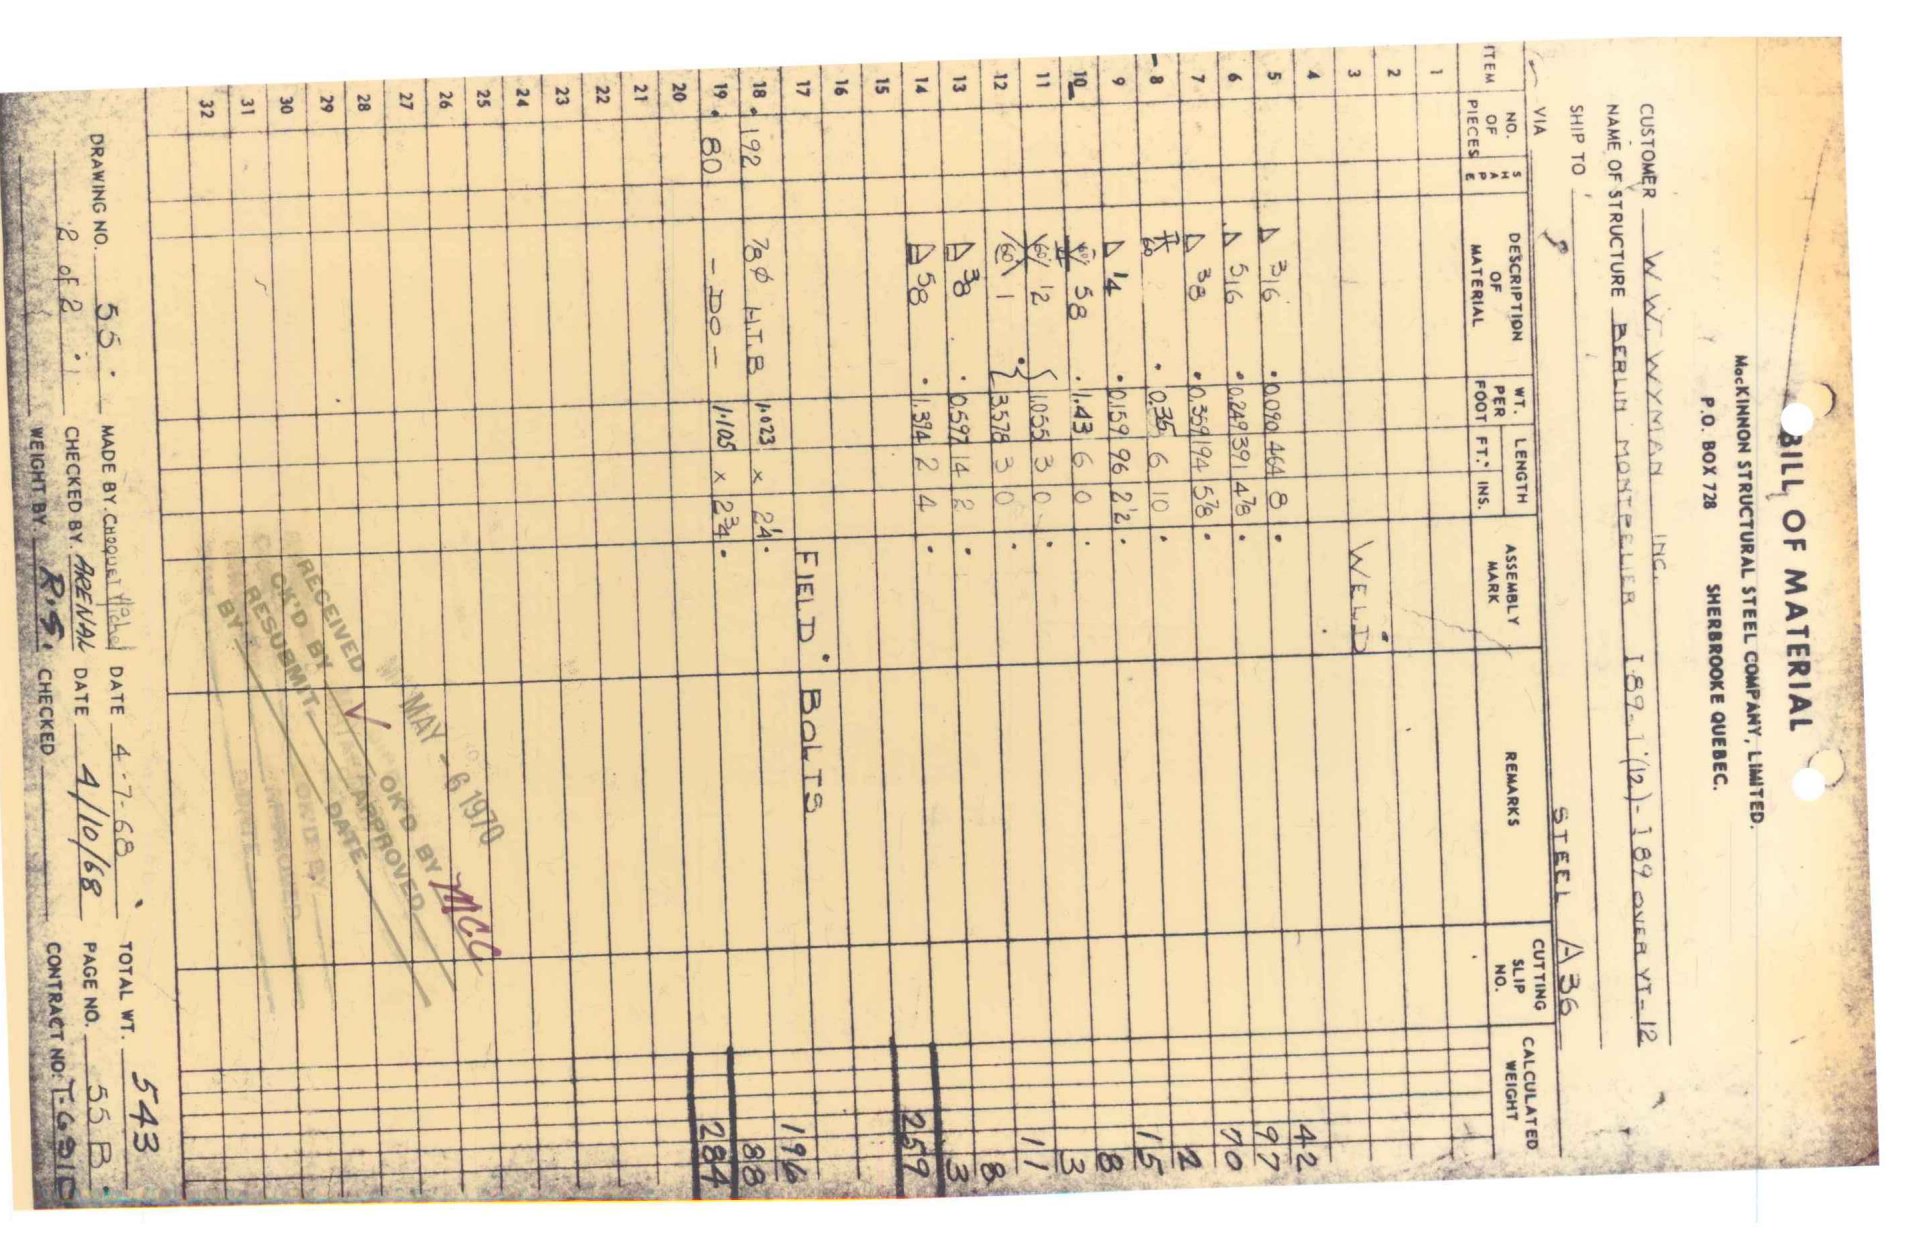 BILL OF MATERIAL
MacKINNON STRUCTURAL STEEL COMPANY, LIMITED.
P.O. BOX 728 SHERBROOKE QUEBEC.
CUSTOMER W.W. WYMAN INC.
NAME OF STRUCTURE BERLIN MONTPELIER I-89-1(12)- I 89 OVER VT-12
SHIP TO
VIA STEEL A36
ITEM NO. OF PIECES SHAPE DESCRIPTION OF MATERIAL WT. PER FOOT LENGTH FT. INS. ASSEMBLY MARK REMARKS CUTTING SLIP NO. CALCULATED WEIGHT
1
2
3 WELD
4 42
5 316 0.090 464 8 97
6 516 0.249 391 4 7/8 70
7 38 0.359 194 5 7/8 2
8 60 0.35 6 10 15
9 1/4 0.159 96 2 1/2 8
10 60 58 1.43 6 0 3
11 60 12 1.055 3 0 11
12 60 1 3.578 3 0 8
13 38 0.597 14 2 3
14 58 1.394 2 4 259
15
16
17 FIELD BOLTS 196
18 192 78ϕ H.T.B 1.023 x 2 1/4 88
19 80 -DO- 1.105 x 2 3/4 284
20
21
22
23
24
25
26
27
28
29
30
31
32
MAY - 6 1970
RECEIVED
CK'D BY OK'D BY MCC
RESUBMIT APPROVED
BY DATE
DRAWING NO. 55 MADE BY. CHOQUET Michel DATE 4-7-68 TOTAL WT. 543
2 of 2 CHECKED BY. ARENAL DATE 4/10/68 PAGE NO. 55 B
WEIGHT BY. R.S. CHECKED CONTRACT NO: T-6910